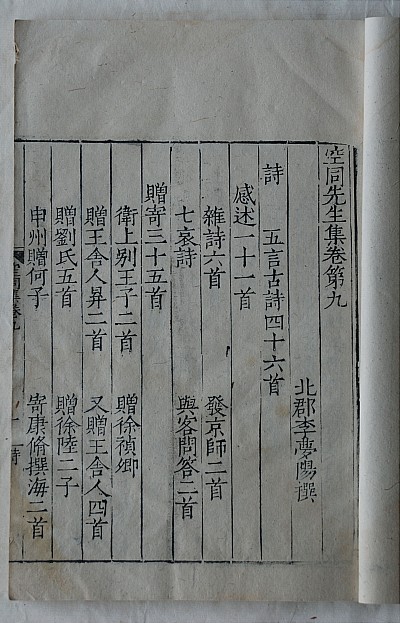 空同先生集卷第九
北郡李夢陽撰
詩 五言古詩四十六首
感述一十一首
雜詩六首 發京師二首
七哀詩 與客問答二首
贈寄三十五首
衛上別王子二首 贈徐禎卿
贈王舍人昇二首 又贈王舍人四首
贈劉氏五首 贈徐陸二子
申州贈何子 寄康脩撰海二首
空同集卷九 詩